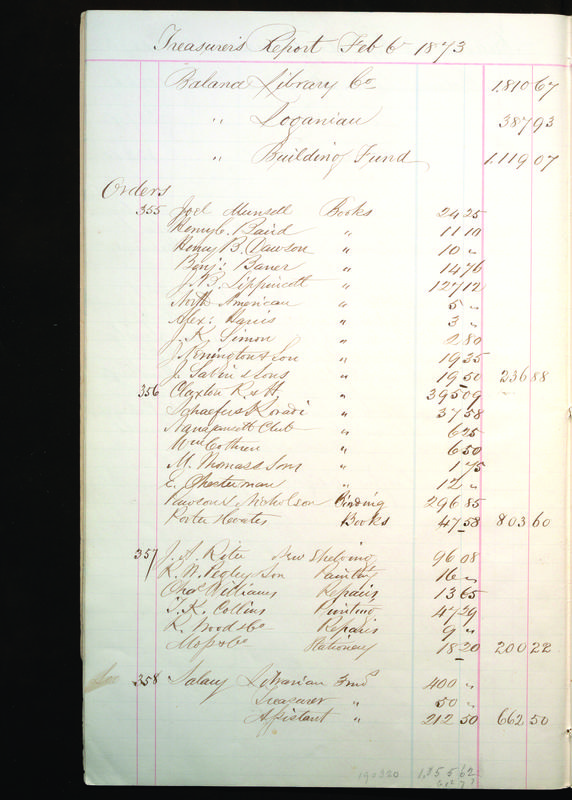 Treasurer's Report Feb 6 1873
Balance Library Co 1.810 67
" Loganian 387 93
" Building Fund 1.119 07
Orders
355 Joel Munsell Books 24 25
Henry C. Baird " 11 10
Henry B. Dawson " 10 "
Benj: " 14 76
J. B. Lippincott " 127 12
North American " 5 "
Alex: Harris " 3 "
J. K. Simon " 2 80
J. Penington & Son " 19 35
J. Sabin & Sons " 19 50 236 88
356 Claxton R & H " 395 09
Schaefer & Koradi " 37 58
Narragansett Club " 6 25
Wm Cothren " 6 50
M. Thomas & Sons " 1 75
E. Chesterman " 12 "
Pawson & Nicholson Binding 296 85
Porter & Coates Books 47 58 803 60
357 J. A. New Shelving 96 08
R. N. & Son Painting 16 "
Chas Williams Repairs 13 65
T. K. Collins Printing 47 29
R. Wood & Co Repairs 9 "
Moss & Co Stationery 18 20 200 22
358 Salary Librarian 400 "
Treasurer " 50 "
Assistant " 212 50 662 50